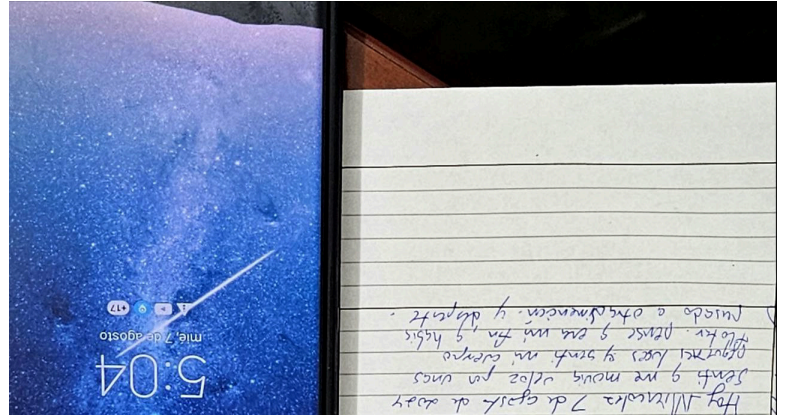 5:04
mié, 7 de agosto
+17
Hoy Miercoles 7 de agosto de 2024
Senti q me movia veloz por unas
pequeñas luces y senti mi cuerpo
flotar. pense q era mi fin, q habia
pasado a otra dimencion. y desperte.